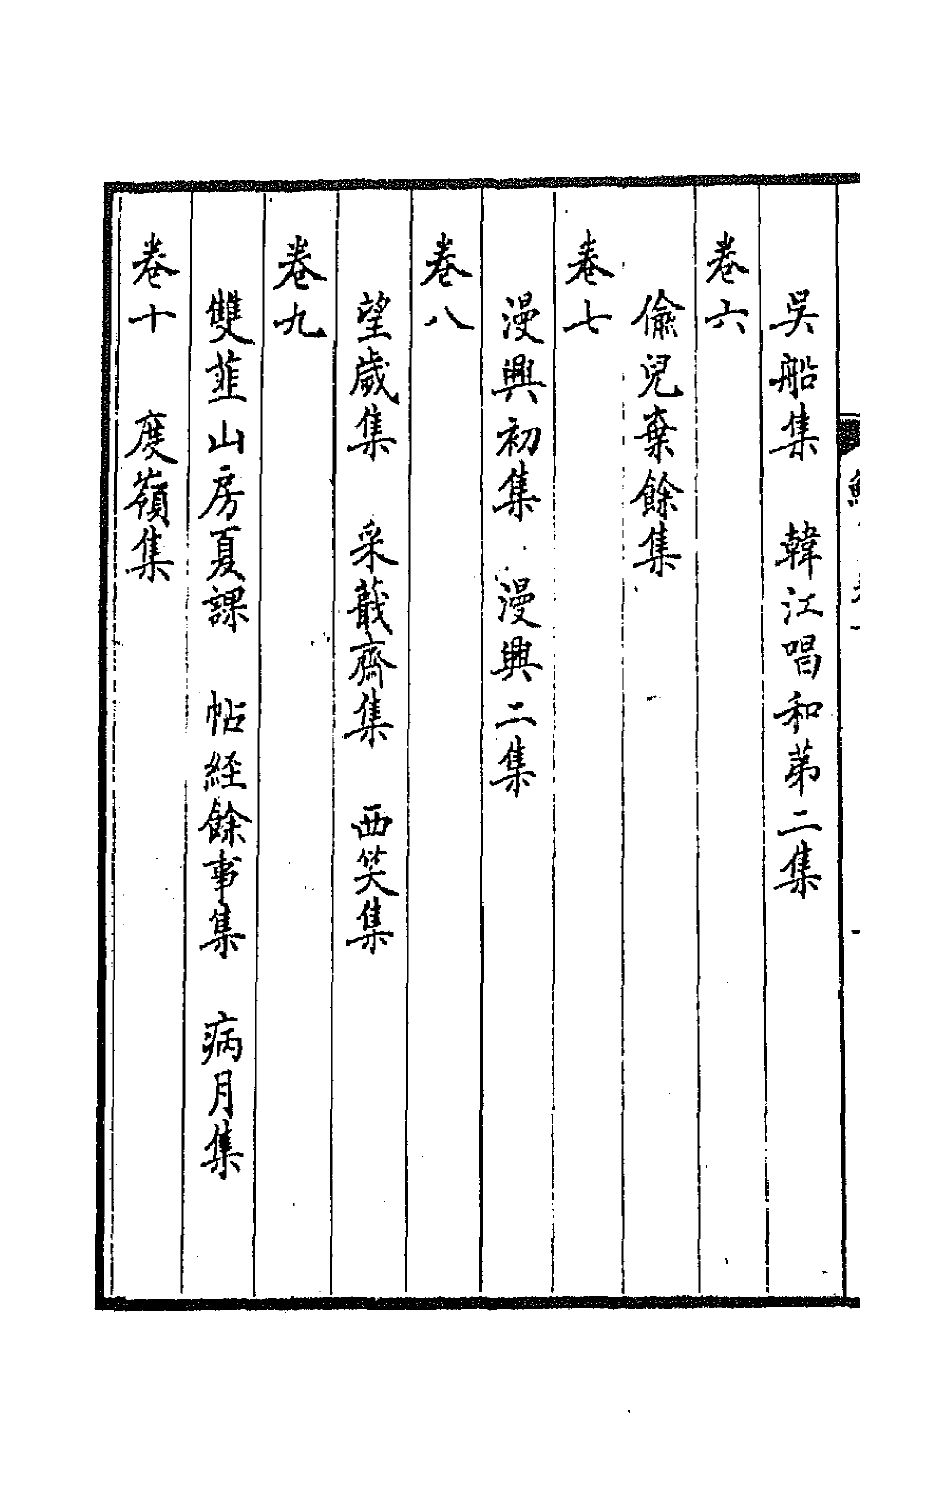 吳船集　韓江唱和第二集
卷六
偸兒棄餘集
卷七
漫興初集　漫興二集
卷八
望歲集　采蕺齋集　西笑集
卷九
雙韭山房夏課　帖經餘事集　病月集
卷十　度嶺集